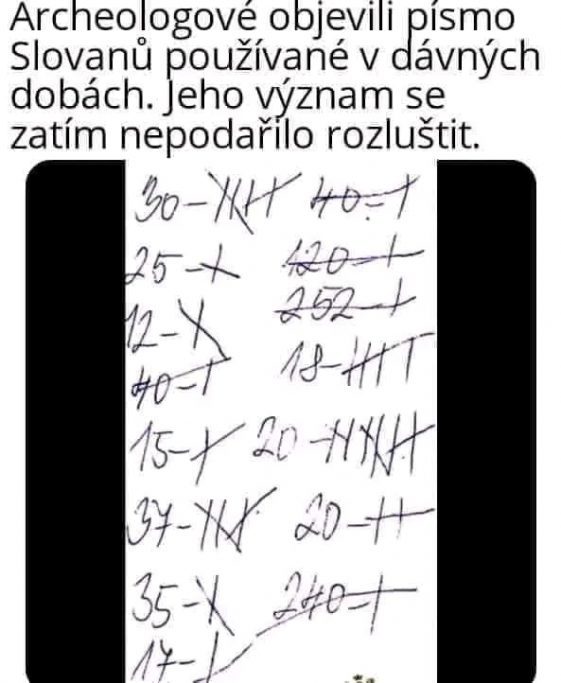 Archeologové objevili písmo
Slovanů používané v dávných
dobách. Jeho význam se
zatím nepodařilo rozluštit.
30 - 40 -
25 - 120 -
12 - 252 -
40 - 18 -
15 - 20 -
37 - 20 -
35 - 240 -
17 -